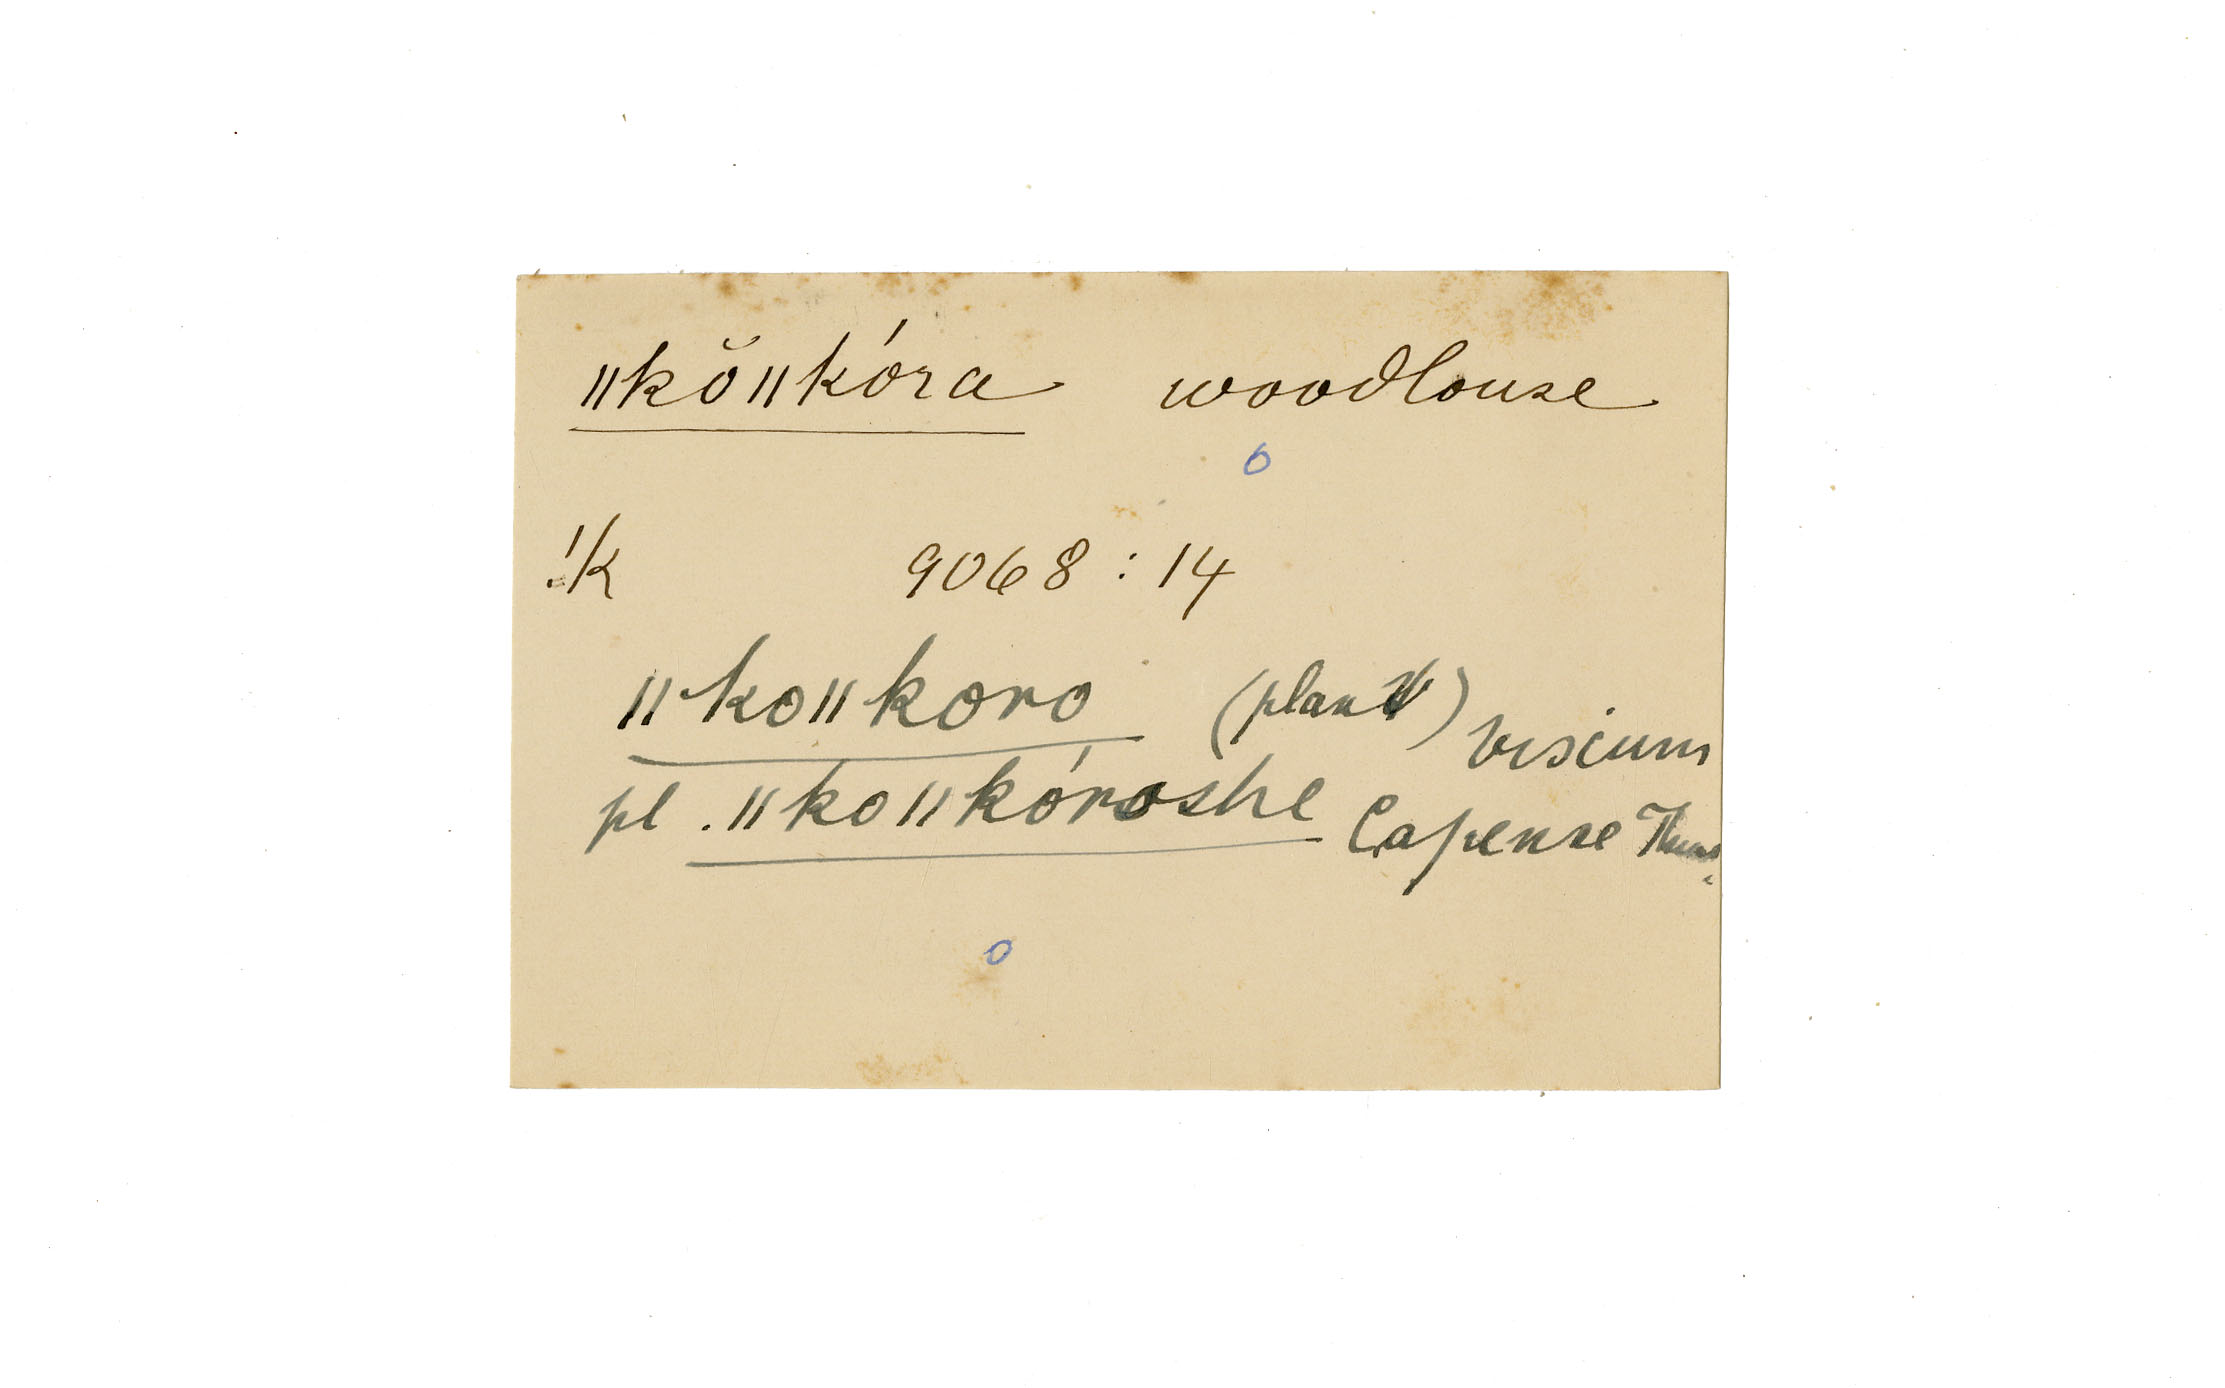 ǁkŏǁkóra woodlouse
o
!k 9068 : 14
ǁkoǁkoro (plant) viscium
pl. ǁkoǁkóroshe Capense
o